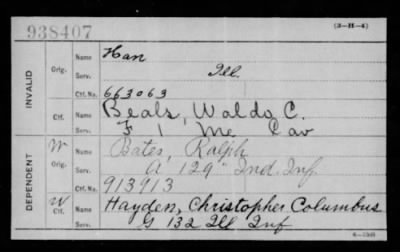 938407
(3-H-4)
INVALID
Orig.
Name Han
Serv. Ill.
Ctf. No. 663063
Ctf.
Name Beals, Waldo C.
Serv. F 1 Me Cav
DEPENDENT
W
Orig.
Name Bates, Ralph
Serv. A 129" Ind. Inf
Ctf. No. 913913
W
Ctf.
Name Hayden, Christopher Columbus
Serv. G 132 Ill Inf